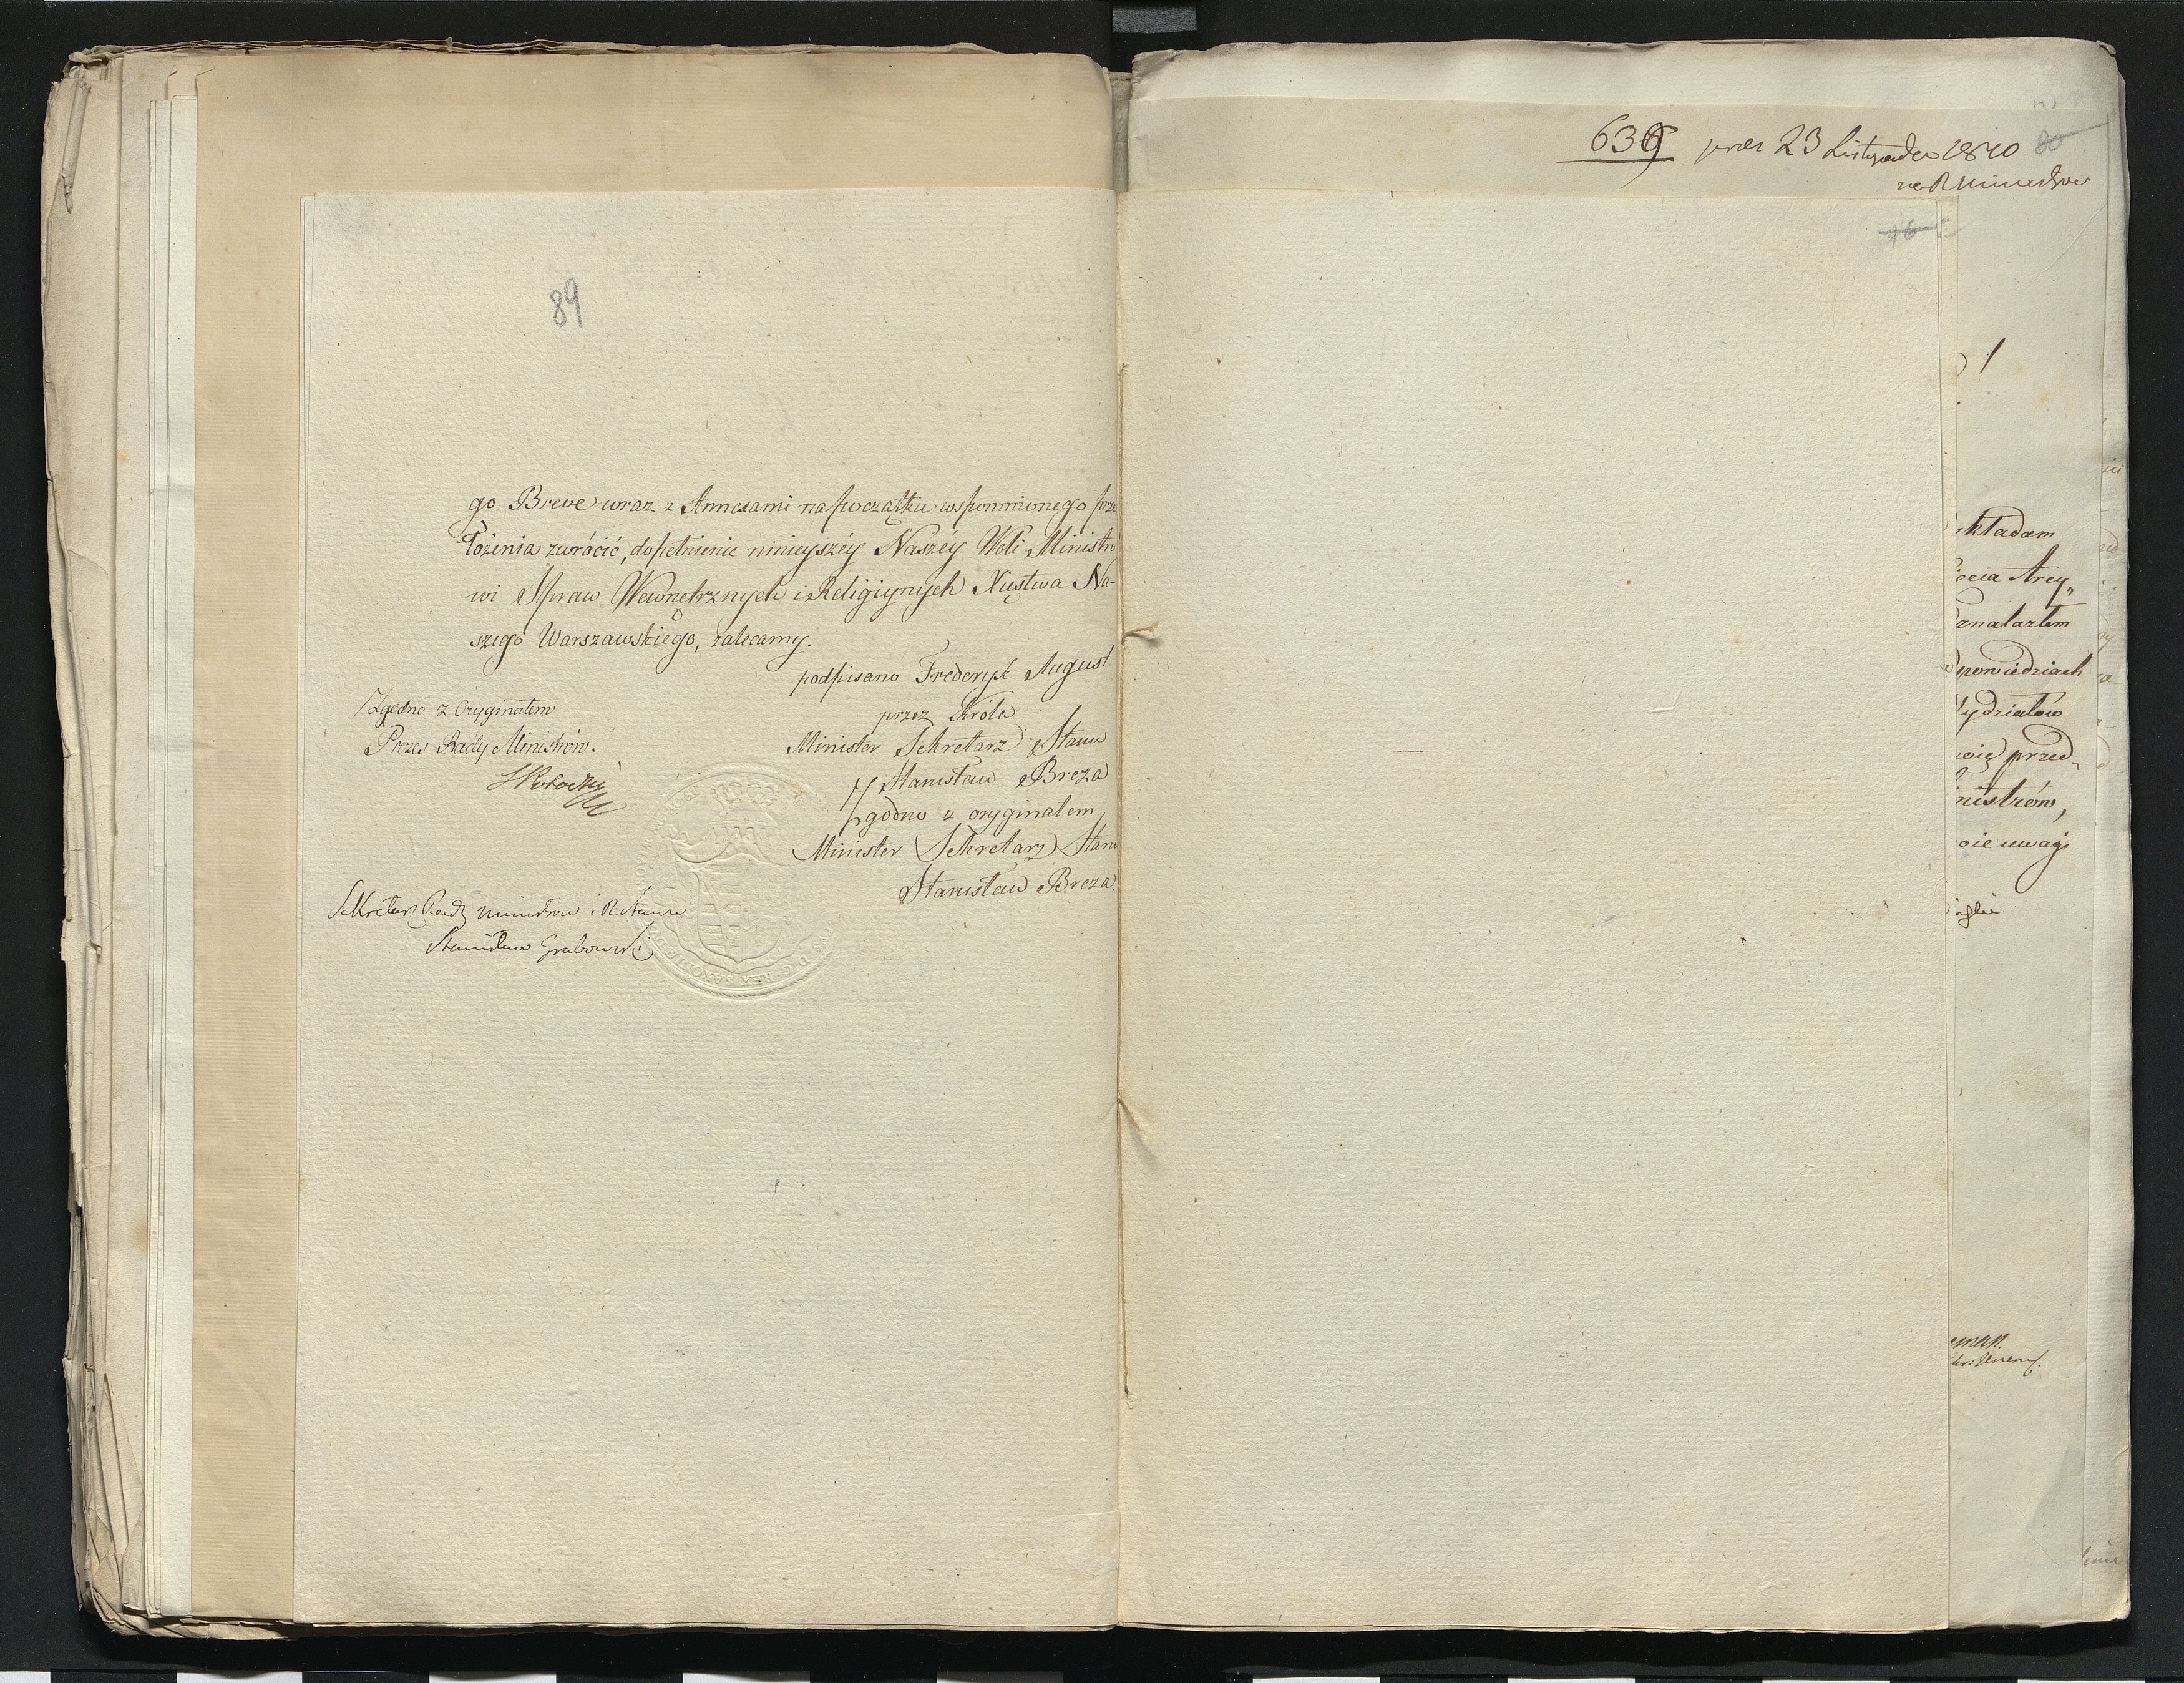 89
go Breve wraz z Annexami na początku wspomnionego prze
łożenia zwrócić, dopełnienie ninieyszéy Naszéy Woli Ministro
wi Spraw Wewnętrznych i Religiynych Xięstwa Na-
szego Warszawskiego, zalecamy.
podpisano Frederyk August
przez Króla
Minister Sekretarz Stanu
Stanisław Breza
zgodno z oryginałem
Minister Sekretarz Stanu
Stanisław Breza.
Zgodno z Oryginałem
Prezes Rady Ministrów.
Sekretarz Rady Ministrów i R Stanu
Stanisław Grabowski
639 prez 23 Listopada 1810
80
na R Ministrow
46
składam
Arcy„
znalazłem
powiedziach
ydziałów
przed„
nistrów,
oie uwagi